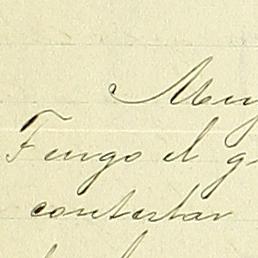 Muy
Tengo el g
contestar